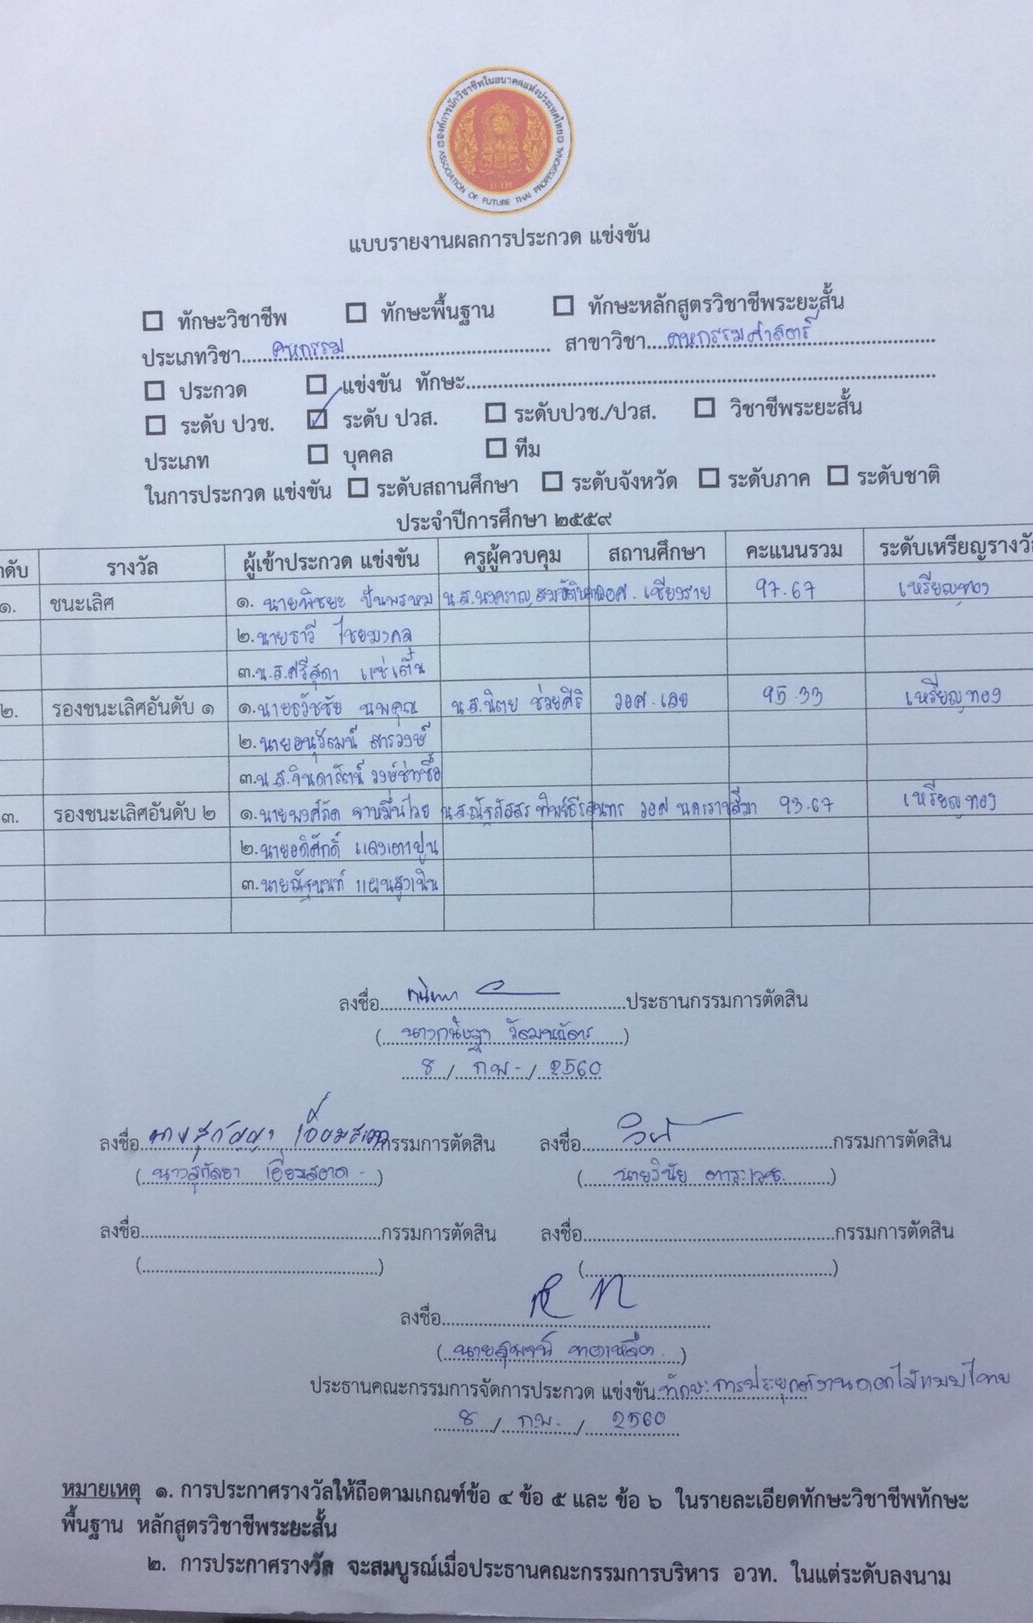 องค์การนักวิชาชีพในอนาคตแห่งประเทศไทย
ASSOCIATION OF FUTURE THAI PROFESSIONAL
แบบรายงานผลการประกวด แข่งขัน
ทักษะวิชาชีพ ทักษะพื้นฐาน ทักษะหลักสูตรวิชาชีพระยะสั้น
ประเภทวิชา คหกรรม สาขาวิชา คหกรรมศาสตร์
ประกวด แข่งขัน ทักษะ
ระดับ ปวช. ระดับ ปวส. ระดับปวช./ปวส. วิชาชีพระยะสั้น
ประเภท บุคคล ทีม
ในการประกวด แข่งขัน ระดับสถานศึกษา ระดับจังหวัด ระดับภาค ระดับชาติ
ประจำปีการศึกษา ๒๕๕๙
รางวัล ผู้เข้าประกวด แข่งขัน ครูผู้ควบคุม สถานศึกษา คะแนนรวม ระดับเหรียญรางวัล
๑. ชนะเลิศ ๑. นายพิชยะ ปันพรหม น.ส.นงคราญ เชียงราย 97.67 เหรียญทอง
๒. นายธาวี ไชยมงคล
๓. น.ส.ศรีสุดา แซ่เติ๋น
๒. รองชนะเลิศอันดับ ๑ ๑. นายธวัชชัย นพคุณ น.ส.นิตย ช่วยศิริ วอศ.เลย 95.33 เหรียญทอง
๒. นายอนุวัฒน์ สารวงษ์
๓. น.ส.จินดารัตน์ วงษ์ช่างซื้อ
๓. รองชนะเลิศอันดับ ๒ ๑. นายพงศ์ภัค จาบหมื่นไวย น.ส.ณัฐภัสสร วอศ นครราชสีมา 93.67 เหรียญทอง
๒. นายอดิศักดิ์ แสงเตาปูน
๓. นายณัฐนนท์ แผนสูงเนิน
ลงชื่อ ประธานกรรมการตัดสิน
( นางกนิษฐา )
8 / ก.พ. / 2560
ลงชื่อ นางสุกัญญา เอี่ยมสอาด กรรมการตัดสิน ลงชื่อ กรรมการตัดสิน
( เอี่ยมสอาด ) ( นายวินัย )
ลงชื่อ กรรมการตัดสิน ลงชื่อ กรรมการตัดสิน
ลงชื่อ
( นายสุพจน์ ทองเหลือ )
ประธานคณะกรรมการจัดการประกวด แข่งขัน ทักษะการประยุกต์งานดอกไม้แบบไทย
8 / ก.พ. / 2560
หมายเหตุ ๑. การประกาศรางวัลให้ถือตามเกณฑ์ข้อ ๔ ข้อ ๕ และ ข้อ ๖ ในรายละเอียดทักษะวิชาชีพทักษะ
พื้นฐาน หลักสูตรวิชาชีพระยะสั้น
๒. การประกาศรางวัล จะสมบูรณ์เมื่อประธานคณะกรรมการบริหาร อวท. ในแต่ระดับลงนาม